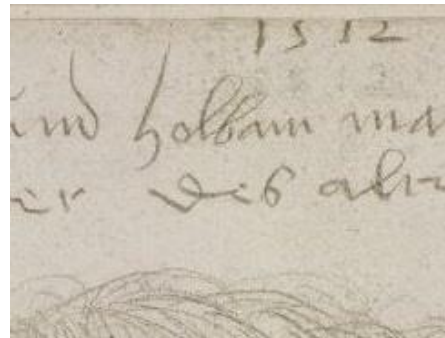 1512
und holbain ma
er des alt